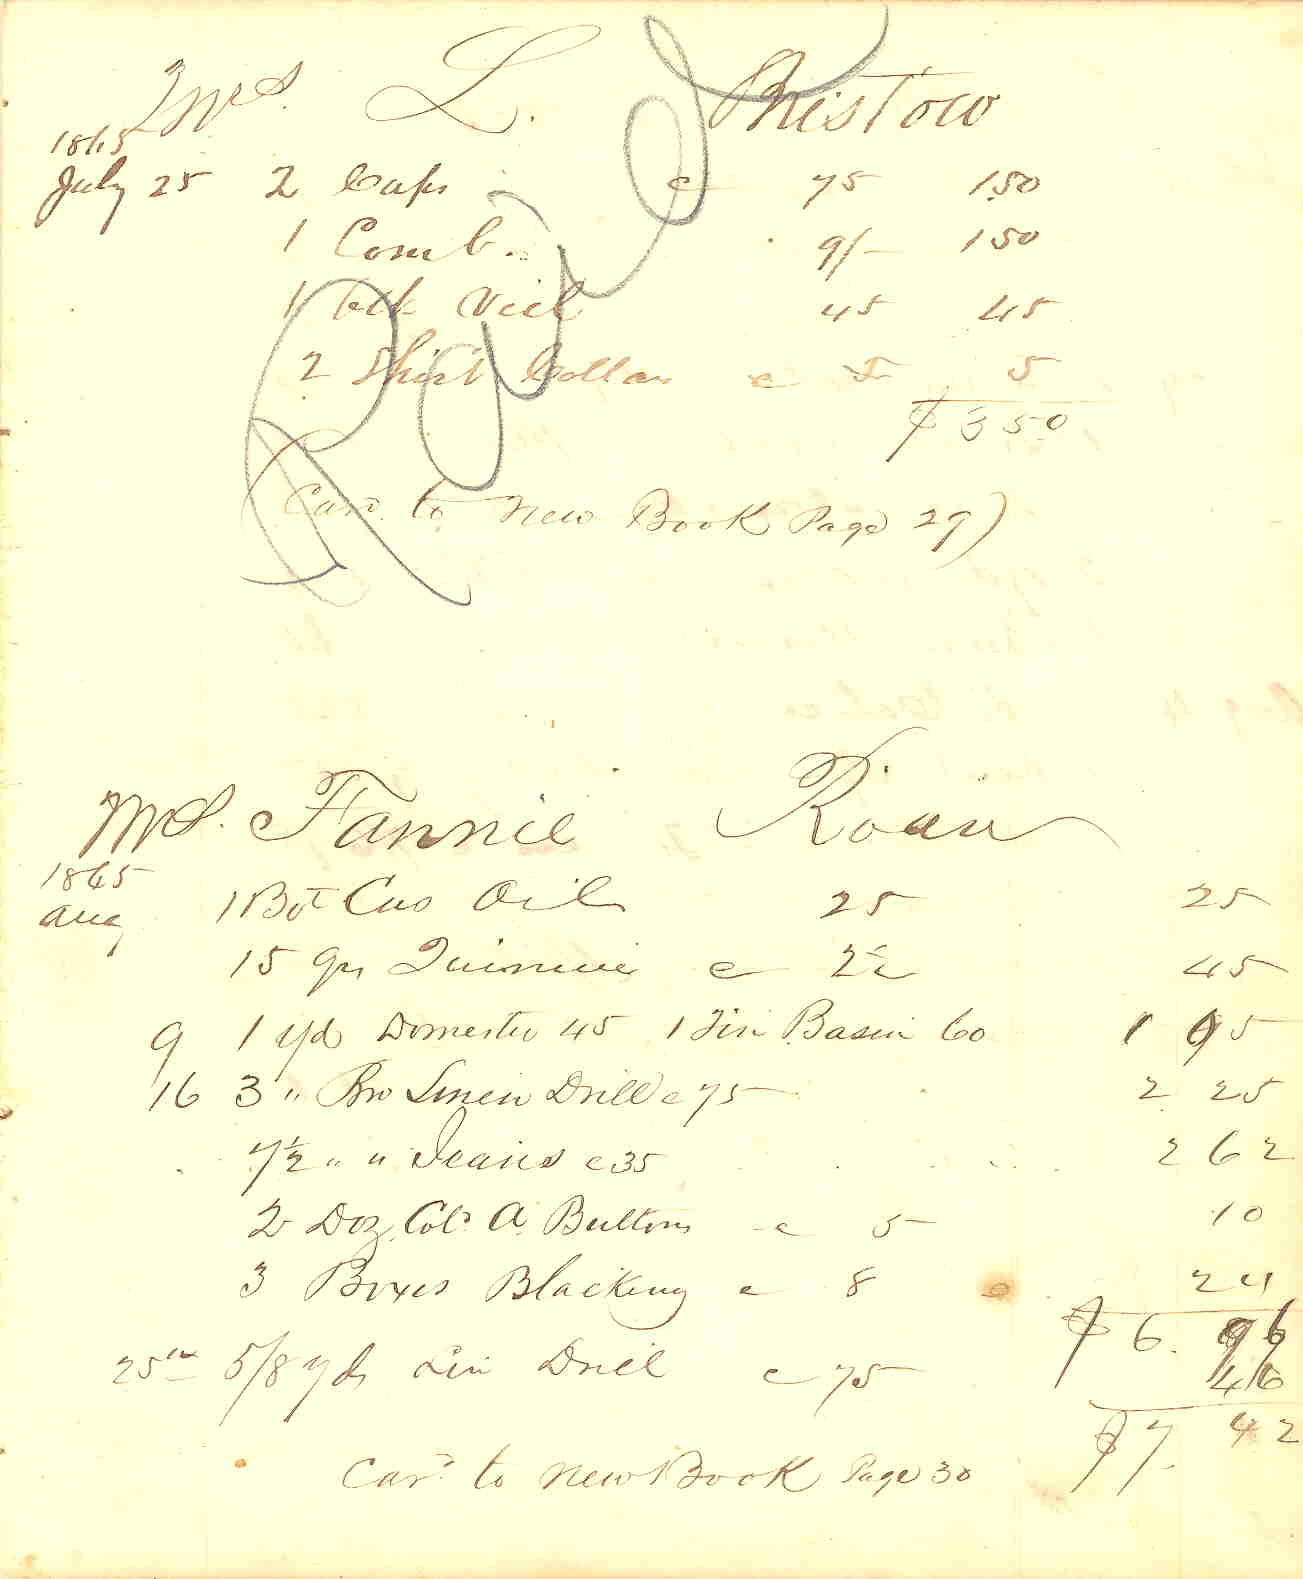 Mrs. L. Bristow
1865
July 25 2 Caps c 75 1.50
1 Comb. 9/- 150
1 blk Viel 45 45
2 Shirt Collars c 5 5
$ 3 50
Paid
(Card. to New Book Page 29)
Mrs. Fannie Roan
1865
Aug 1 Bot Cas Oil 25 25
15 grs Quinine c 45
9 1 yd Domestic 45 1 Tin Basin 60 1 05
16 3 " Bro Linen Drill c 75 2 25
7½ " " Jeans c 35 2 62
2 Doz. Cold. A. Buttons c 5 10
3 Boxes Blacking c 8 24
$ 6. 96
25th 5/8 yds Lin Drill c 75 46
$ 7. 42
Card to New Book Page 30